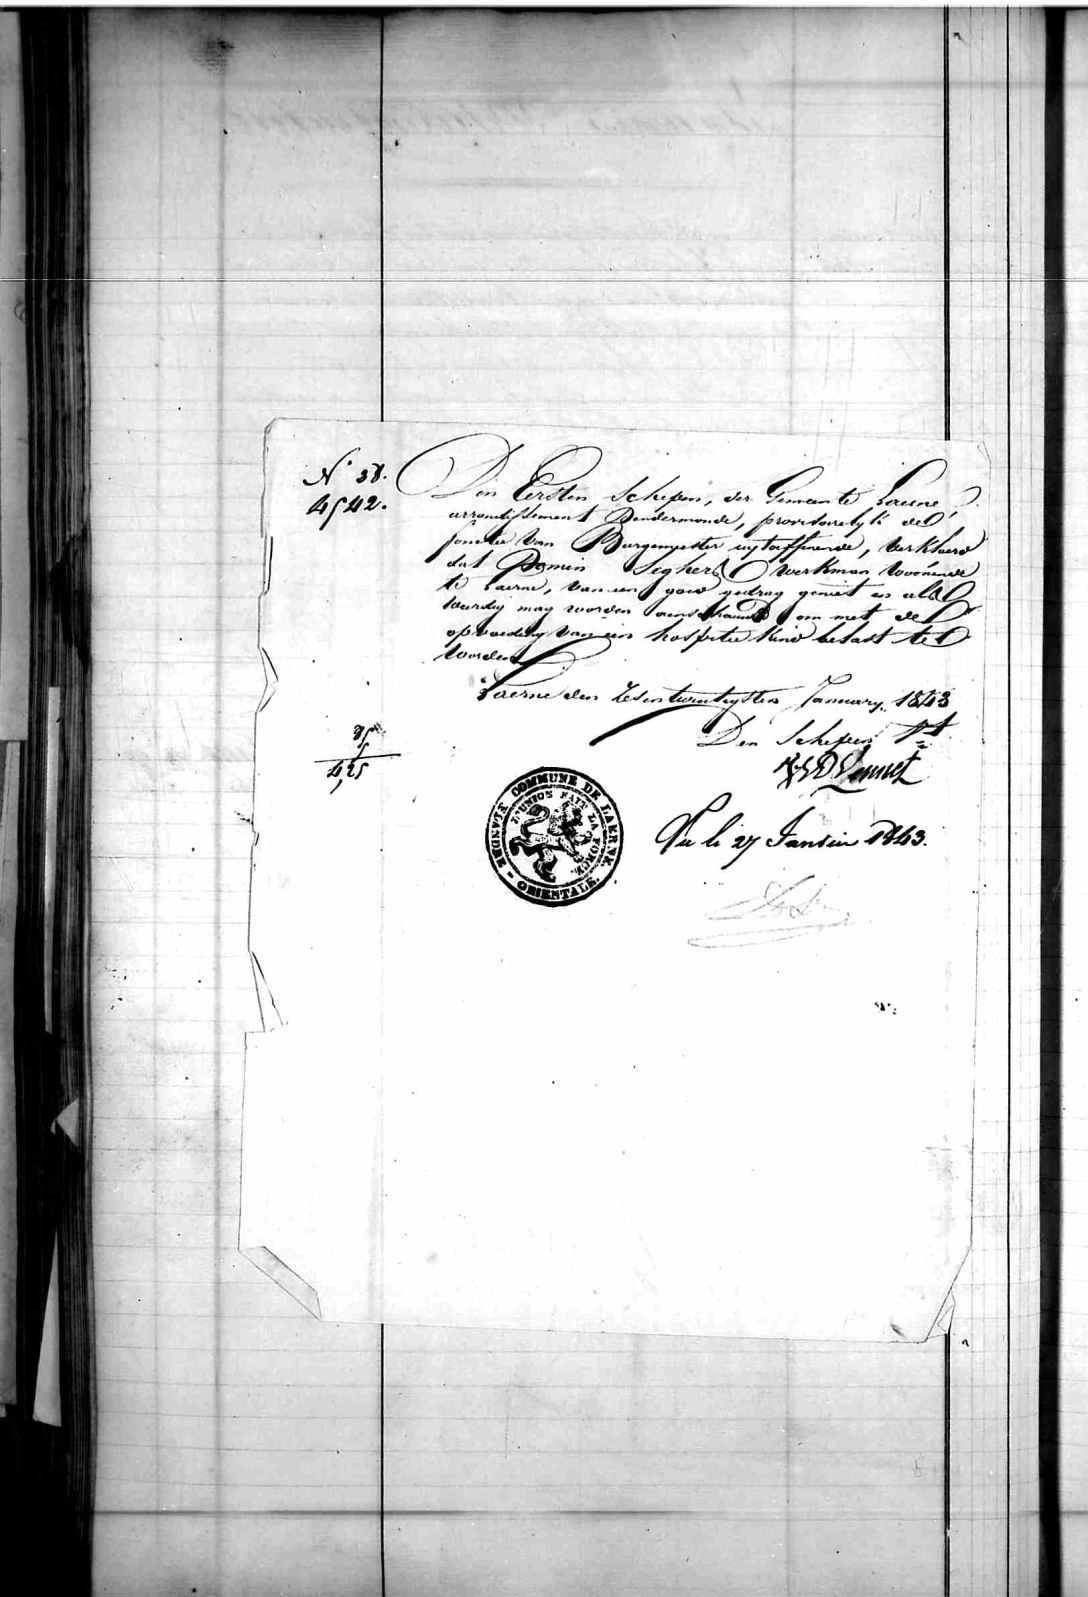 N° 38.
4542.
Den Eersten Schepen, der Gemeente Laerne,
arrondissement Dendermonde, provisoirelyk de
fonctie van Burgemeester uytoeffenende, verklaerd
dat Domin Seghers werkman woonende
te Laerne, van een goed gedrag geniet en als
waerdig mag worden aenschauwd om met de
opvoeding van een hospitie kind belast te
worden
Laerne den zesentwintigsten January, 1843
Den Schepen
Vu le 27 Janvier 1843.
85
5
4,25
COMMUNE DE LAERNE.
FLANDRE - ORIENTALE.
L'UNION FAIT LA FORCE